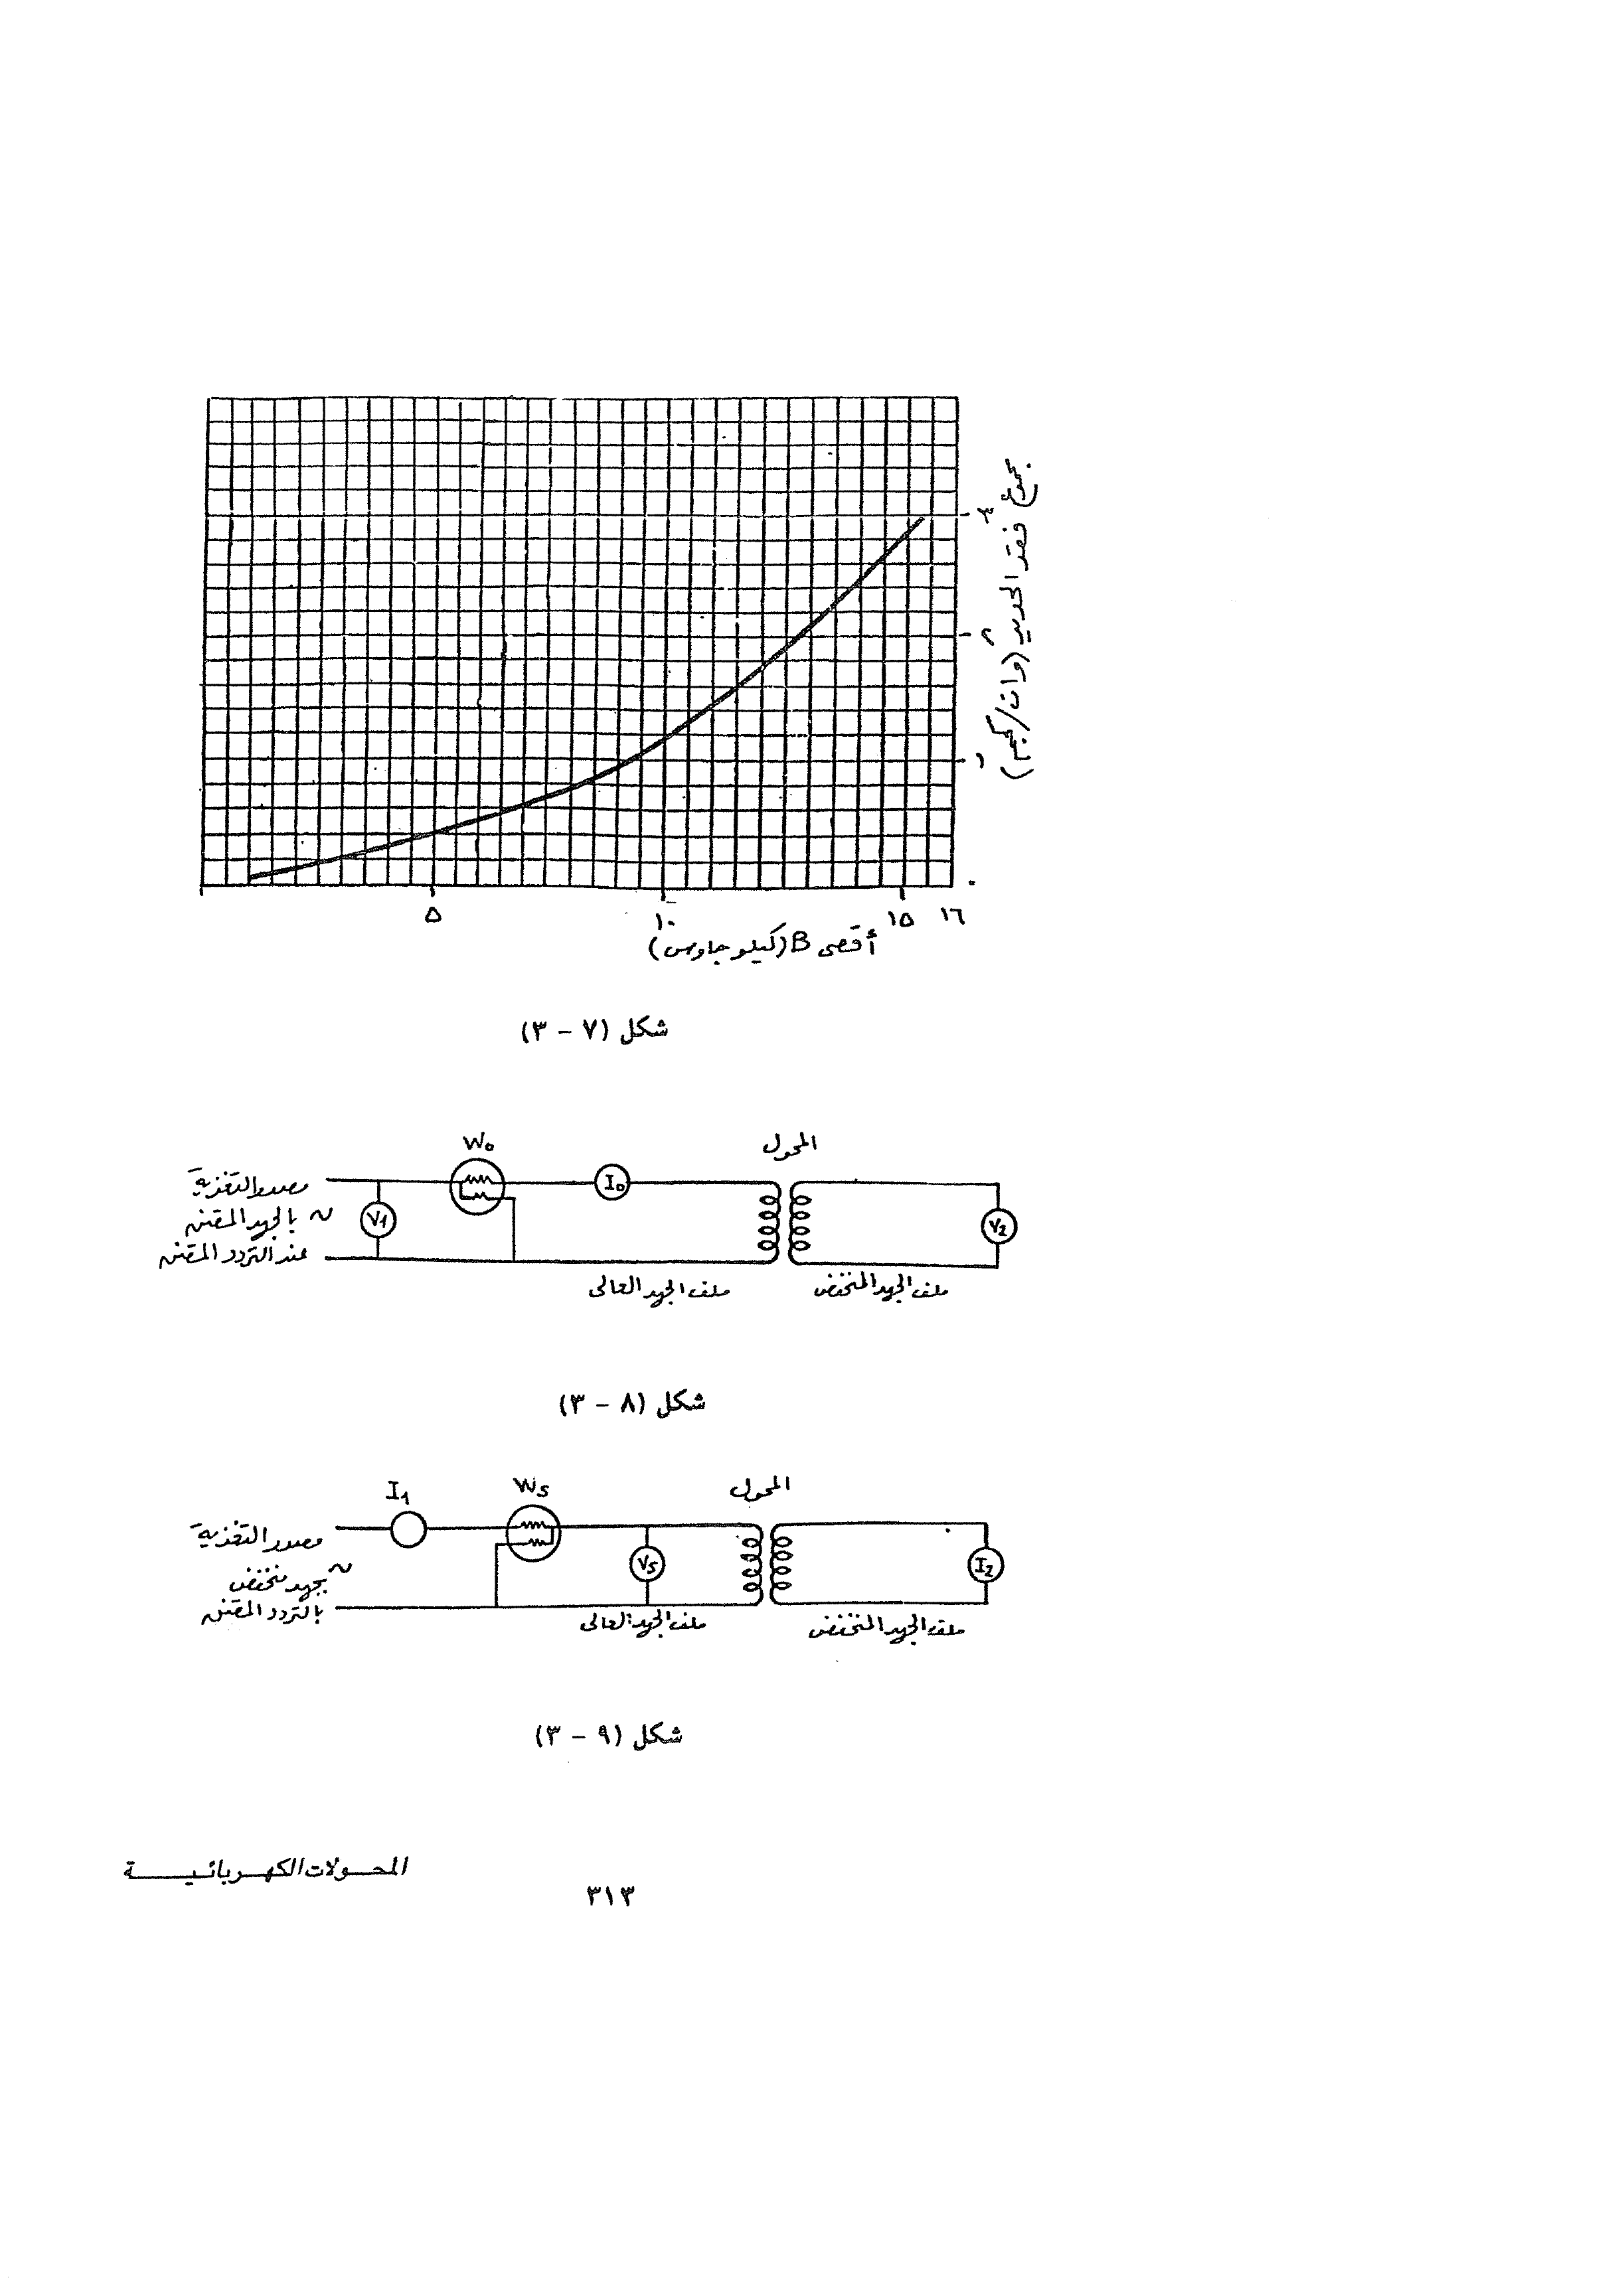 مجموع فقد الحديد (وات/كجم)
٥
١٠
١٥
١٦
أقصى B (كيلو جاوس)
شكل (٧ - ٣)
W₀
المحول
I₀
V₁
V₂
مصدر التغذية
~ بالجهد المقنن
عند التردد المقنن
ملف الجهد العالى
ملف الجهد المنخفض
شكل (٨ - ٣)
I₁
W₅
المحول
V₅
I₂
مصدر التغذية
~ بجهد منخفض
بالتردد المقنن
ملف الجهد العالى
ملف الجهد المنخفض
شكل (٩ - ٣)
المحولات الكهربائية
٣١٣